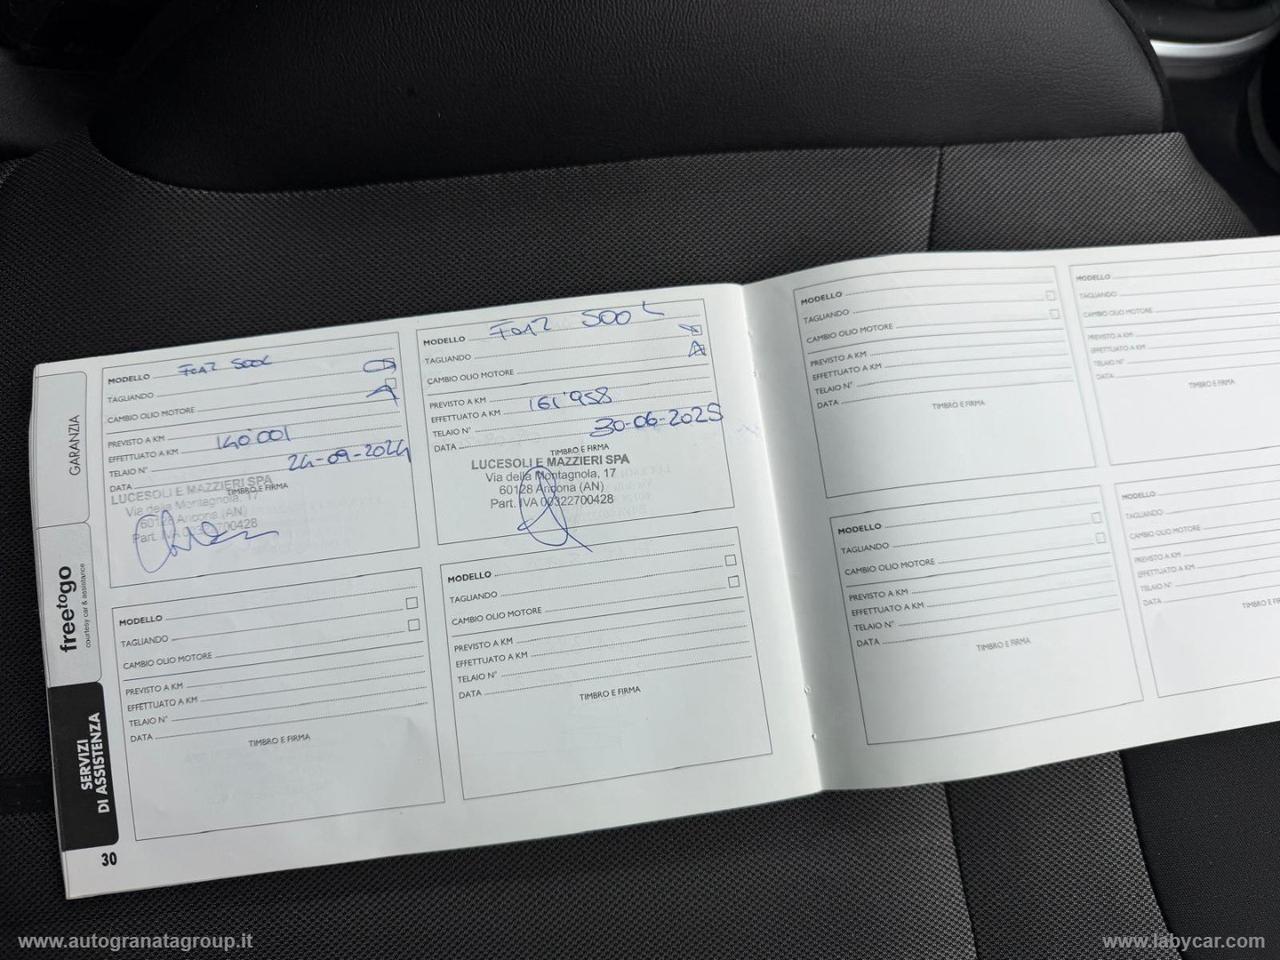 GARANZIA
freetogo
courtesy car & assistance
SERVIZI
DI ASSISTENZA
30
MODELLO FIAT 500L
TAGLIANDO
CAMBIO OLIO MOTORE
PREVISTO A KM
EFFETTUATO A KM 140'001
TELAIO N°
DATA 24-09-2024
TIMBRO E FIRMA
LUCESOLI E MAZZIERI SPA
Via della Montagnola, 17
60128 Ancona (AN)
Part. IVA 00322700428
MODELLO FIAT 500 L
TAGLIANDO
CAMBIO OLIO MOTORE
PREVISTO A KM
EFFETTUATO A KM 161'958
TELAIO N°
DATA 30-06-2025
TIMBRO E FIRMA
LUCESOLI E MAZZIERI SPA
Via della Montagnola, 17
60128 Ancona (AN)
Part. IVA 00322700428
MODELLO
TAGLIANDO
CAMBIO OLIO MOTORE
PREVISTO A KM
EFFETTUATO A KM
TELAIO N°
DATA
TIMBRO E FIRMA
MODELLO
TAGLIANDO
CAMBIO OLIO MOTORE
PREVISTO A KM
EFFETTUATO A KM
TELAIO N°
DATA
TIMBRO E FIRMA
MODELLO
TAGLIANDO
CAMBIO OLIO MOTORE
PREVISTO A KM
EFFETTUATO A KM
TELAIO N°
DATA
TIMBRO E FIRMA
MODELLO
TAGLIANDO
CAMBIO OLIO MOTORE
PREVISTO A KM
EFFETTUATO A KM
TELAIO N°
DATA
TIMBRO E FIRMA
MODELLO
TAGLIANDO
CAMBIO OLIO MOTORE
PREVISTO A KM
EFFETTUATO A KM
TELAIO N°
DATA
TIMBRO E FIRMA
MODELLO
TAGLIANDO
CAMBIO OLIO MOTORE
PREVISTO A KM
EFFETTUATO A KM
TELAIO N°
DATA
TIMBRO E
www.autogranatagroup.it
www.labycar.com